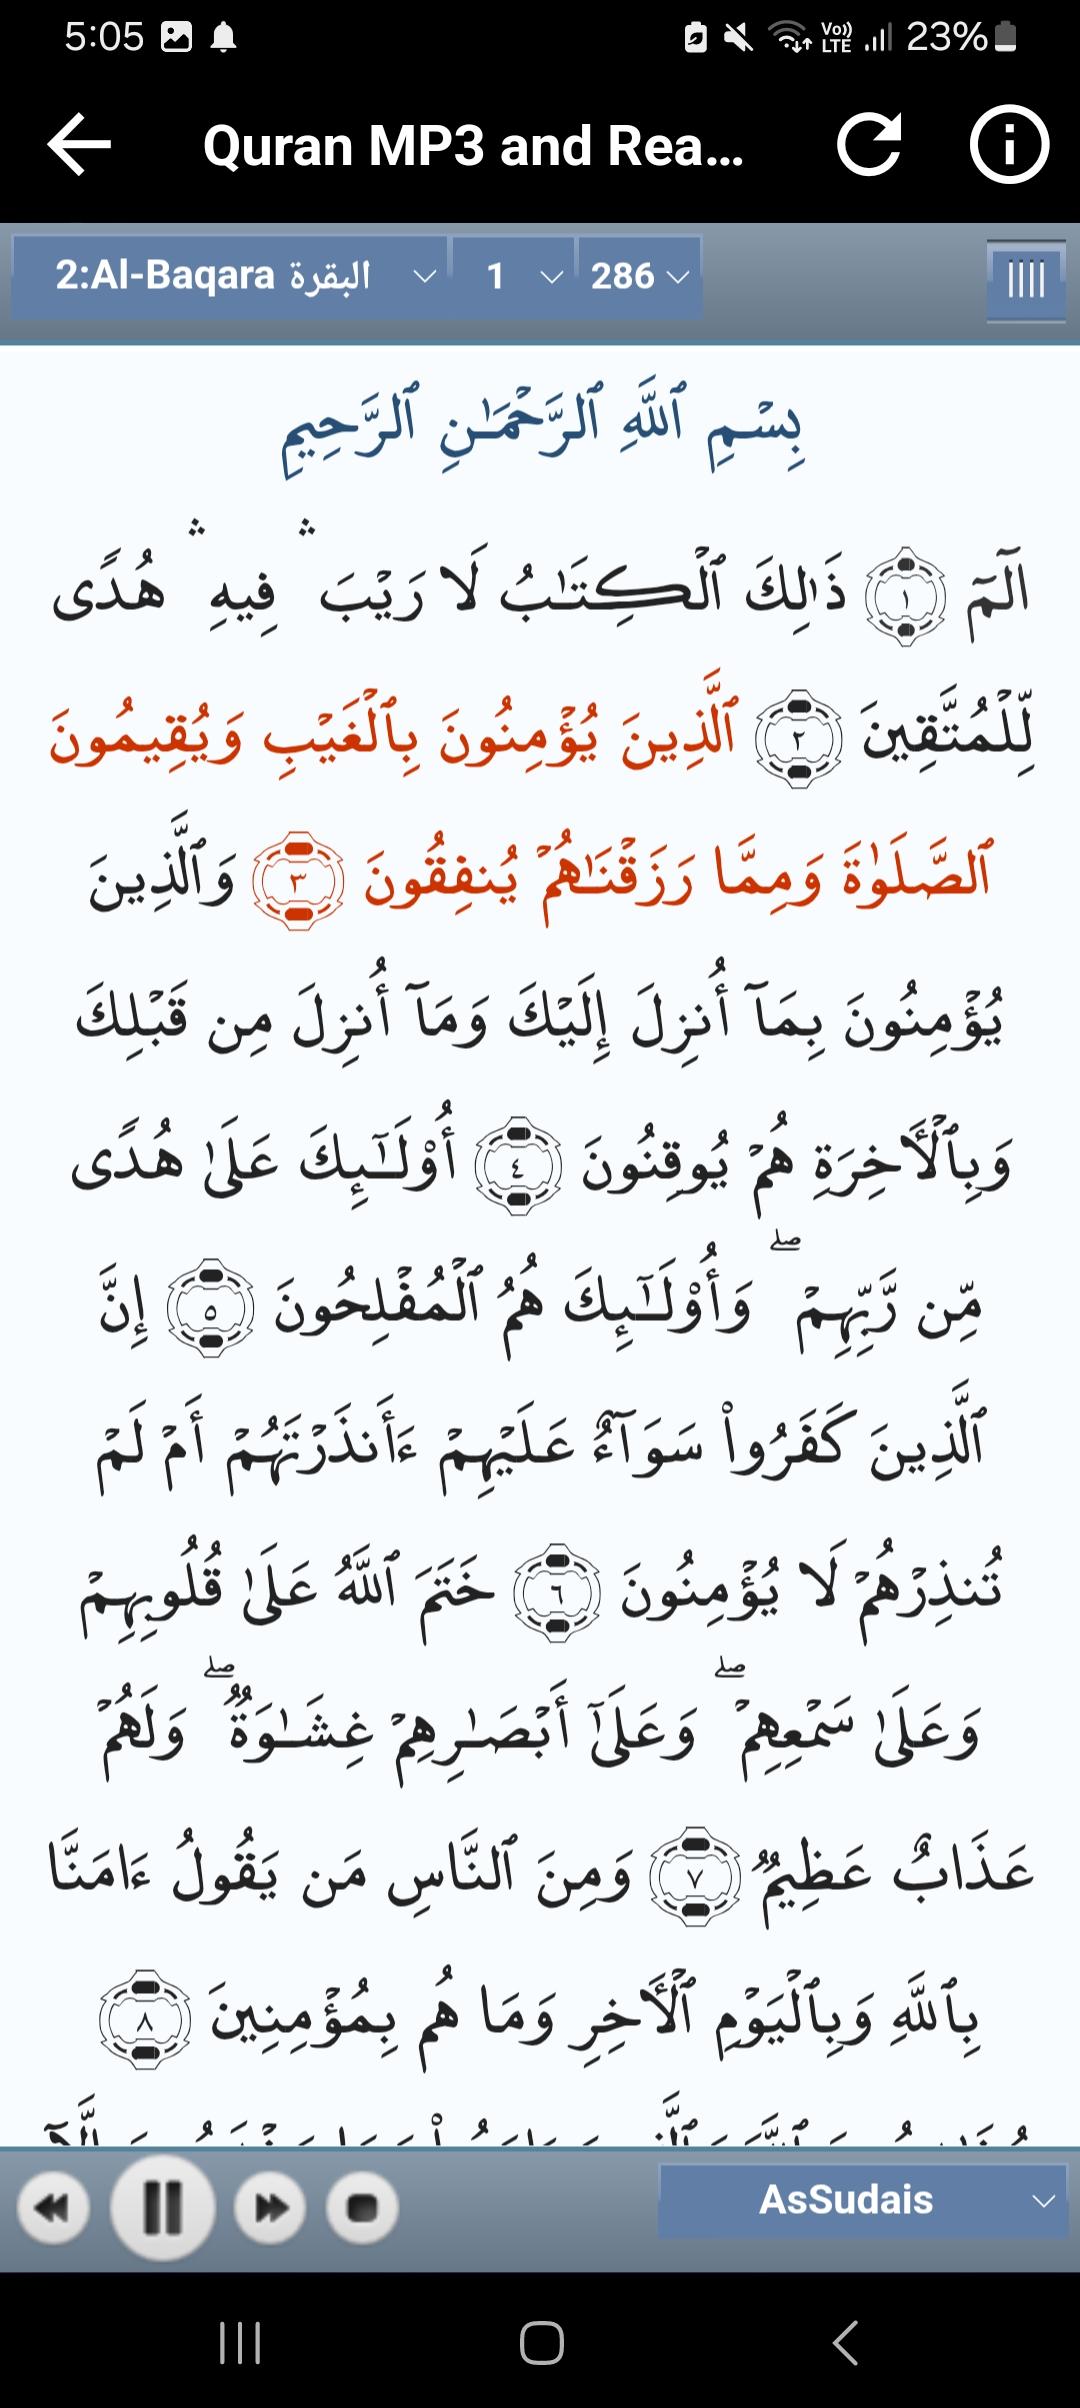 5:05
Vo)) LTE 23%
Quran MP3 and Rea...
2:Al-Baqara البقرة 1 286
بِسْمِ ٱللَّهِ ٱلرَّحْمَـٰنِ ٱلرَّحِيمِ
الٓمٓ ١ ذَٰلِكَ ٱلْكِتَـٰبُ لَا رَيْبَ ۛ فِيهِ ۛ هُدًى
لِّلْمُتَّقِينَ ٢ ٱلَّذِينَ يُؤْمِنُونَ بِٱلْغَيْبِ وَيُقِيمُونَ
ٱلصَّلَوٰةَ وَمِمَّا رَزَقْنَـٰهُمْ يُنفِقُونَ ٣ وَٱلَّذِينَ
يُؤْمِنُونَ بِمَآ أُنزِلَ إِلَيْكَ وَمَآ أُنزِلَ مِن قَبْلِكَ
وَبِٱلْـَٔاخِرَةِ هُمْ يُوقِنُونَ ٤ أُو۟لَـٰٓئِكَ عَلَىٰ هُدًى
مِّن رَّبِّهِمْ ۖ وَأُو۟لَـٰٓئِكَ هُمُ ٱلْمُفْلِحُونَ ٥ إِنَّ
ٱلَّذِينَ كَفَرُوا۟ سَوَآءٌ عَلَيْهِمْ ءَأَنذَرْتَهُمْ أَمْ لَمْ
تُنذِرْهُمْ لَا يُؤْمِنُونَ ٦ خَتَمَ ٱللَّهُ عَلَىٰ قُلُوبِهِمْ
وَعَلَىٰ سَمْعِهِمْ ۖ وَعَلَىٰٓ أَبْصَـٰرِهِمْ غِشَـٰوَةٌ ۖ وَلَهُمْ
عَذَابٌ عَظِيمٌ ٧ وَمِنَ ٱلنَّاسِ مَن يَقُولُ ءَامَنَّا
بِٱللَّهِ وَبِٱلْيَوْمِ ٱلْـَٔاخِرِ وَمَا هُم بِمُؤْمِنِينَ ٨
AsSudais